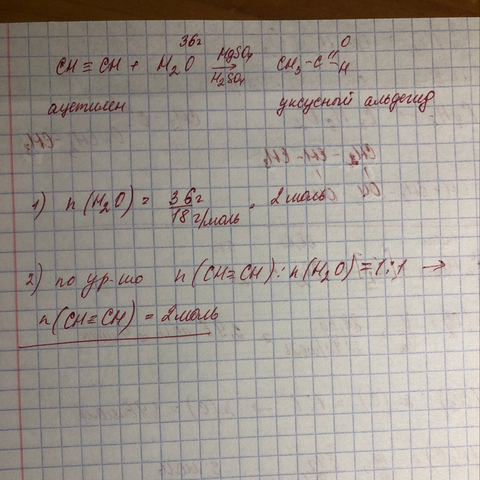 36г
CH ≡ CH + H₂O HgSO₄ → H₂SO₄ CH₃ - C O H
ацетилен уксусный альдегид
1) n (H₂O) = 36г / 18 г/моль = 2 моль
2) по ур-ию n (CH≡CH) : n (H₂O) = 1 : 1 →
n (CH≡CH) = 2 моль